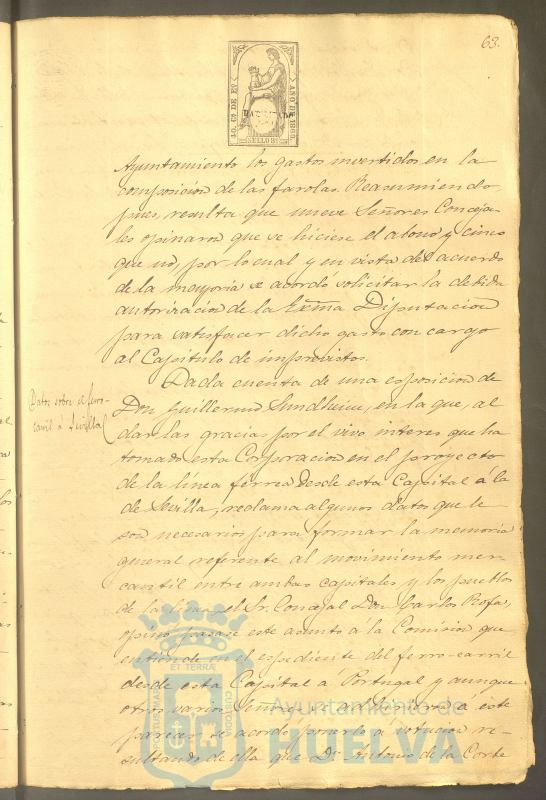 63.
40. Cs. DE Eo.
AÑO DE 1869.
SELLO 9º
Ayuntamiento los gastos invertidos en la
composicion de las farolas. Reasumiendo
pues, resulta que nueve Señores Conceja-
les opinaron que se hiciese el abono y cinco
que no, por lo cual y en vista del acuerdo
de la mayoría se acordó solicitar la debida
autorizacion de la Exma Diputacion
para satisfacer dicho gasto con cargo
al Capitulo de imprevistos.
Datos sobre el ferro-
carril a Sevilla
Dada cuenta de una esposicion de
Don Guillermo Sundheim, en la que, al
dar las gracias por el vivo interes que ha
tomado esta Corporacion en el proyecto
de la linea ferrea desde esta Capital á la
de Sevilla, reclama algunos datos que le
son necesarios para formar la memoria
general referente al movimiento mer-
cantil entre ambas capitales y los pueblos
de la linea, el Sr. Concejal Don Carlos Rofa,
opinó pasase este asunto á la Comision que
entiende en el espediente del ferro-carril
desde esta Capital a Portugal y aunque
otros varios Señores se adhirieron á este
parecer se acordó ponerlo á votacion re-
sultando de ella que Dn. Antonio de la Corte
PORTUS MARIS
ET TERRÆ
CUSTODIA
Ayuntamiento de
HUELVA